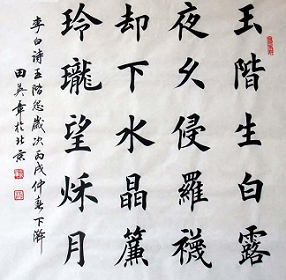 玉階生白露
夜久侵羅襪
却下水晶簾
玲瓏望秌月
李白诗玉階怨歲次丙戌仲春下澣
田英章於北京